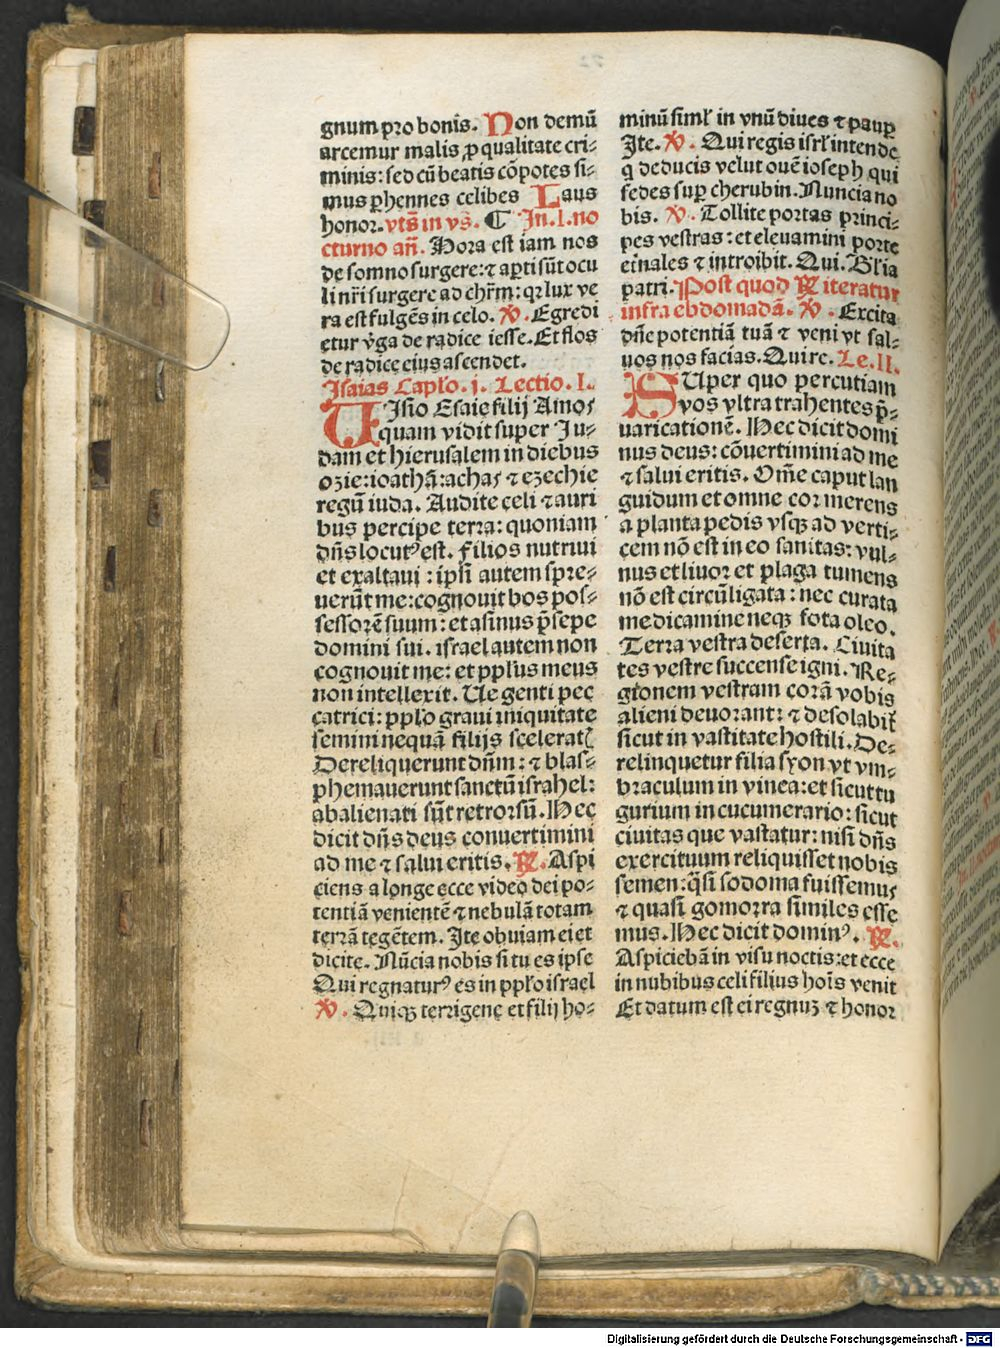 gnum pro bonis. Non demū
arcemur malis ꝓ qualitate cri⸗
minis: sed cū beatis cōpotes si⸗
mus ꝑhennes celibes Laus
honor. vts̄ in vs̄. ¶ In .I. no
cturno an̄. Hora est iam nos
de somno surgere: ⁊ aꝑti sūt ocu
li nr̄i surgere ad chr̄m: qꝛ lux ve
ra est fulgēs in celo. ℣. Egredi
etur v̄ga de radice iesse. Et flos
de radice eius ascendet.
Isaias Caplo. j. Lectio. I.
UIsio Esaie filij Amos
quam vidit super Iu⸗
dam et hierusalem in diebus
ozie: ioathā: achas ⁊ ezechie
regū iuda. Audite celi ⁊ auri
bus percipe terra: quoniam
dn̄s locutꝰ est. filios nutriui
et exaltaui: ipsi autem spre⸗
uerūt me: cognouit bos pos⸗
sessorē suum: et asinus p̄sepe
domini sui. israel autem non
cognouit me: et ppl'us meus
non intellexit. Ue genti pec
catrici: ppl'o graui iniquitate
semini nequā filijs scelerat᷒
Dereliquerunt dn̄m: ⁊ blas⸗
phemauerunt sanctū israhel:
abalienati sūt retrorsū. Hec
dicit dn̄s deus conuertimini
ad me ⁊ salui eritis. ℟. Aspi
ciens a longe ecce video dei po⸗
tentiā venientē ⁊ nebulā totam
terrā tegētem. Ite obuiam ei et
dicite. Nūcia nobis si tu es ipse
Qui regnaturꝰ es in ppl'o israel
℣. Quiqꝫ terrigene et filij ho⸗
minū siml' in vnū diues ⁊ pauꝑ
Ite. ℣. Qui regis isrl' intende
q deducis velut ouē ioseph qui
sedes suꝑ cherubin. Nuncia no
bis. ℣. Tollite portas princi⸗
pes vestras: et eleuamini porte
et̄nales ⁊ introibit. Qui. Gl'ia
patri. Post quod ℟ iteratur
infra ebdomadā. ℣. Excita
dn̄e potentiā tuā ⁊ veni vt sal⸗
uos nos facias. Qui rc. Le. II.
SUper quo percutiam
vos vltra trahentes p̄⸗
uaricationē. Hec dicit domi
nus deus: cōuertimini ad me
⁊ salui eritis. Om̄e caput lan
guidum et omne cor merens
a planta pedis vsqꝫ ad verti⸗
cem nō est in eo sanitas: vul⸗
nus et liuor et plaga tumens
nō est circūligata: nec curata
medicamine neqꝫ fota oleo.
Terra vestra deserta. Ciuita
tes vestre succense igni. Re⸗
gionem vestram corā vobis
alieni deuorant: ⁊ desolabit᷒
sicut in vastitate hostili. De⸗
relinquetur filia syon vt vm⸗
braculum in vinea: et sicut tu
gurium in cucumerario: sicut
ciuitas que vastatur: nisi dn̄s
exercituum reliquisset nobis
semen: q̄si sodoma fuissemus
⁊ quasi gomorra similes esse
mus. Hec dicit dominꝰ. ℟.
Aspiciebā in visu noctis: et ecce
in nubibus celi filius hoīs venit
Et datum est ei regnuꝫ ⁊ honor
Digitalisierung gefördert durch die Deutsche Forschungsgemeinschaft - DFG